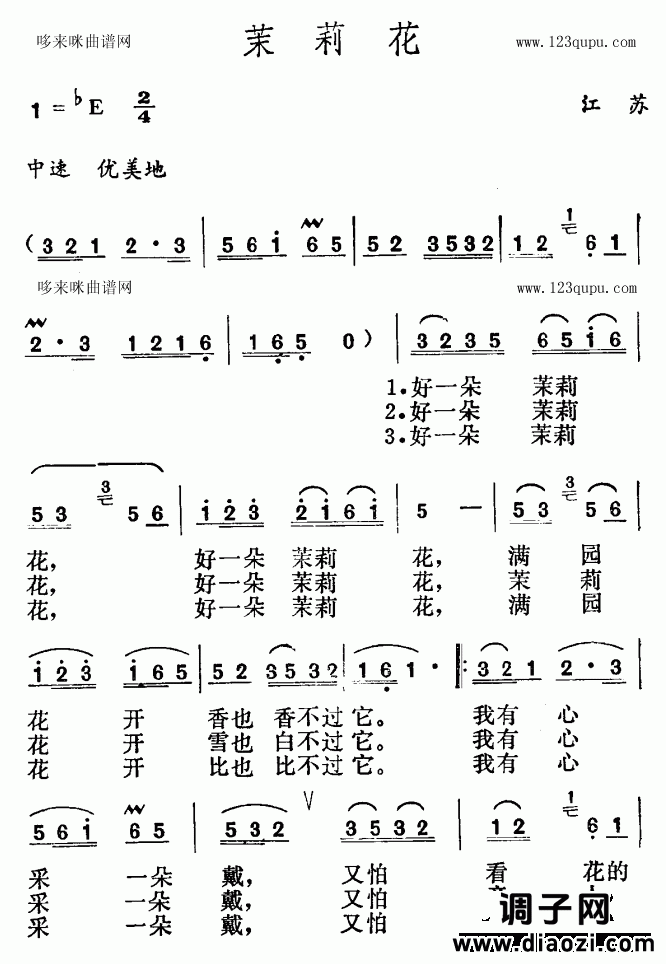 哆来咪曲谱网 茉莉花 www.123qupu.com
1=♭E 2/4 江苏
中速 优美地
(321 2·3 | 56i 65 | 52 3532 | 12 1 61 |
哆来咪曲谱网 www.123qupu.com
2·3 1216 | 165 0) | 3235 65i6 |
1.好一朵 茉莉
2.好一朵 茉莉
3.好一朵 茉莉
53 3 56 | i23 2i6i | 5 — | 53 3 56 |
花, 好一朵 茉莉 花, 满园
花, 好一朵 茉莉 花, 茉莉
花, 好一朵 茉莉 花, 满园
i23 i65 | 52 3532 | 161· |: 321 2·3 |
花开 香也 香不过它。 我有心
花开 雪也 白不过它。 我有心
花开 比也 比不过它。 我有心
56i 65 | 532 V 3532 | 12 1 61 |
采一朵 戴, 又怕 看 花的
采一朵 戴, 又怕
采一朵 戴, 又怕
调子网
www.diaozi.com